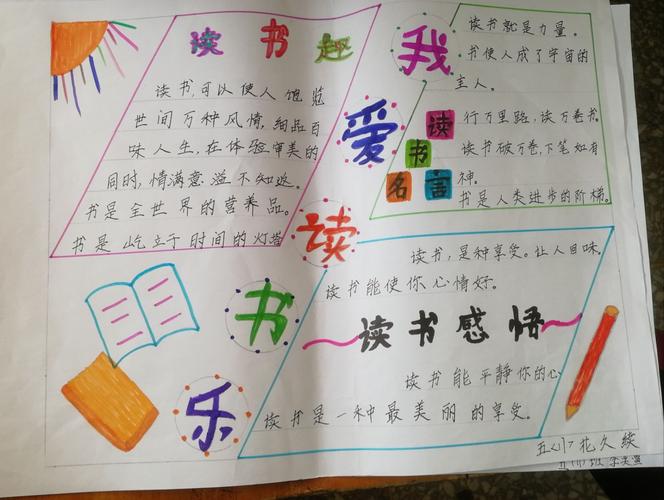 读书趣
读书,可以使人饱览
世间万种风情,细品百
味人生,在体验审美的
同时,情满意溢不知迟。
书是全世界的营养品。
书是屹立于时间的灯塔
我
爱
读
书
乐
读书就是力量。
书使人成了宇宙的
主人。
读书名言
行万里路,读万卷书。
读书破万卷,下笔如有
神。
书是人类进步的阶梯。
读书,是种享受。让人回味。
读书能使你心情好。
读书感悟
读书能平静你的心
读书是一种最美丽的享受。
五